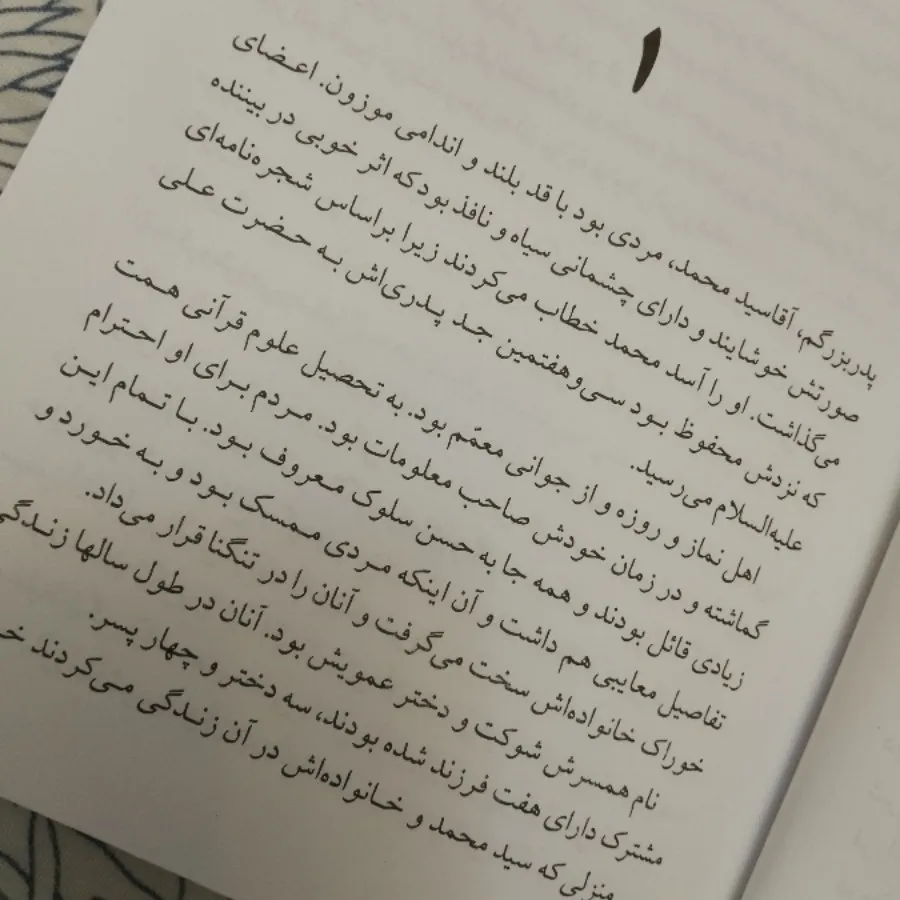 ۱
پدربزرگم، آقاسید محمد، مردی بود با قد بلند و اندامی موزون. اعضای
صورتش خوشایند و دارای چشمانی سیاه و نافذ بود که اثر خوبی در بیننده
می‌گذاشت. او را آسد محمد خطاب می‌کردند زیرا براساس شجره‌نامه‌ای
که نزدش محفوظ بود سی‌وهفتمین جد پدری‌اش به حضرت علی
علیه‌السلام می‌رسید.
اهل نماز و روزه و از جوانی معمّم بود. به تحصیل علوم قرآنی همت
گماشته و در زمان خودش صاحب معلومات بود. مردم برای او احترام
زیادی قائل بودند و همه جا به حسن سلوک معروف بود. با تمام این
تفاصیل معایبی هم داشت و آن اینکه مردی ممسک بود و به خورد و
خوراک خانواده‌اش سخت می‌گرفت و آنان را در تنگنا قرار می‌داد.
نام همسرش شوکت و دختر عمویش بود. آنان در طول سالها زندگی
مشترک دارای هفت فرزند شده بودند، سه دختر و چهار پسر.
منزلی که سید محمد و خانواده‌اش در آن زندگی می‌کردند